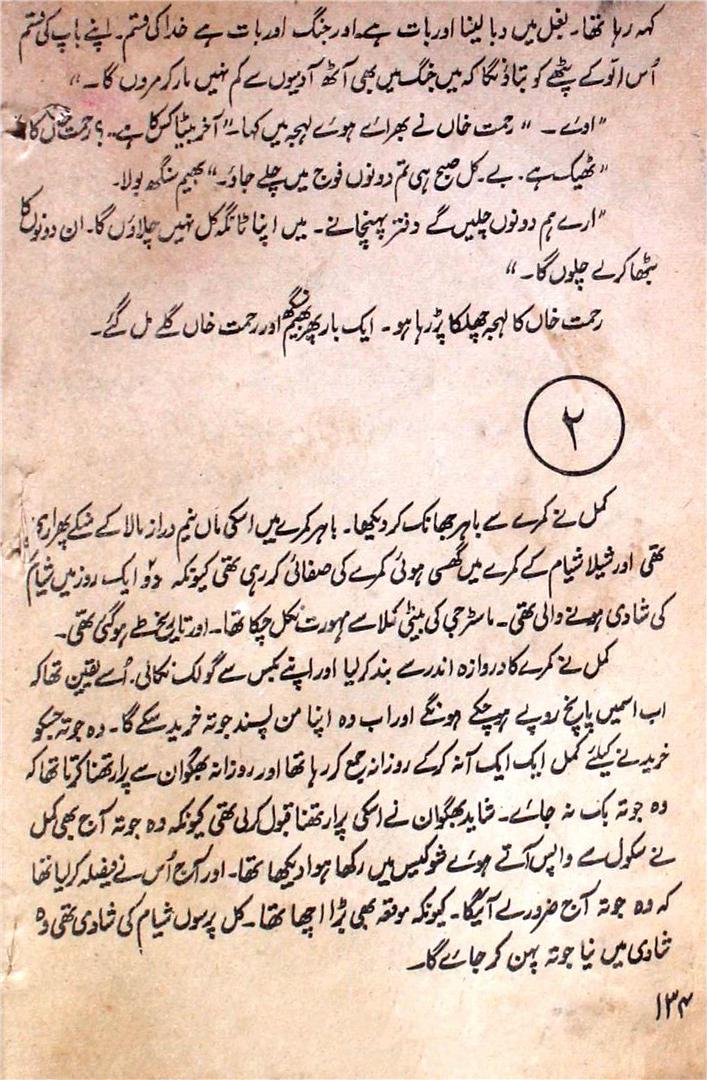 کہہ رہا تھا۔ بغل میں دبا لینا اور بات ہے۔ اور جنگ اور بات ہے خدا کی قسم۔ اپنے باپ کی قسم
اُس اُلّو کے پٹھے کو بتا دُنگا کہ میں جنگ میں بھی آٹھ آدمیوں سے کم نہیں مار کر مروں گا۔"
"اوئے۔" رحمت خاں نے بھرائے ہوئے لہجہ میں کہا۔ "آخر بیٹا کس کا ہے۔؟ رحمت خاں کا
"ٹھیک ہے۔ بے۔ کل صبح ہی تم دونوں فوج میں چلے جاؤ۔" بھیم سنگھ بولا۔
"ارے ہم دونوں چلیں گے دفتر پہنچانے۔ میں اپنا ٹانگہ کل نہیں چلاؤں گا۔ ان دونوں کا
بٹھا کر لے چلوں گا۔"
رحمت خاں کا لہجہ چھلکا پڑ رہا ہو۔ ایک بار پھر بھیم سنگھ اور رحمت خاں گلے مل گئے۔
۲
کمل نے کمرے سے باہر جھانک کر دیکھا۔ باہر کمرے میں اسکی ماں نیم دراز مالا کے منکے پھرا رہی
تھی اور شیلا شیام کے کمرے میں گھسی ہوئی کمرے کی صفائی کر رہی تھی کیونکہ دو ایک روز میں شیام
کی شادی ہونے والی تھی۔ ماسٹر جی کی بیٹی کملا سے مہورت نکل چکا تھا۔ اور تاریخ طے ہو گئی تھی۔
کمل نے کمرے کا دروازہ اندر سے بند کر لیا اور اپنے بکس سے گولک نکالی۔ اُسے یقین تھا کہ
اب اسمیں پانچ روپے ہو چکے ہونگے اور اب وہ اپنا من پسند جوتہ خرید سکے گا۔ وہ جوتہ جسکو
خریدنے کیلئے کمل ایک ایک آنہ کر کے روزانہ جمع کر رہا تھا اور روزانہ بھگوان سے پرارتھنا کرتا تھا کہ
وہ جوتہ بک نہ جائے۔ شاید بھگوان نے اسکی پرارتھنا قبول کر لی تھی کیونکہ وہ جوتہ آج بھی کمل
نے سکول سے واپس آتے ہوئے شوکیس میں رکھا ہوا دیکھا تھا۔ اور آج اُس نے فیصلہ کر لیا تھا
کہ وہ جوتہ آج ضرور لے آئیگا۔ کیونکہ موقعہ بھی بڑا اچھا تھا۔ کل پرسوں شیام کی شادی تھی وہ
شادی میں نیا جوتہ پہن کر جائے گا۔
۱۳۴